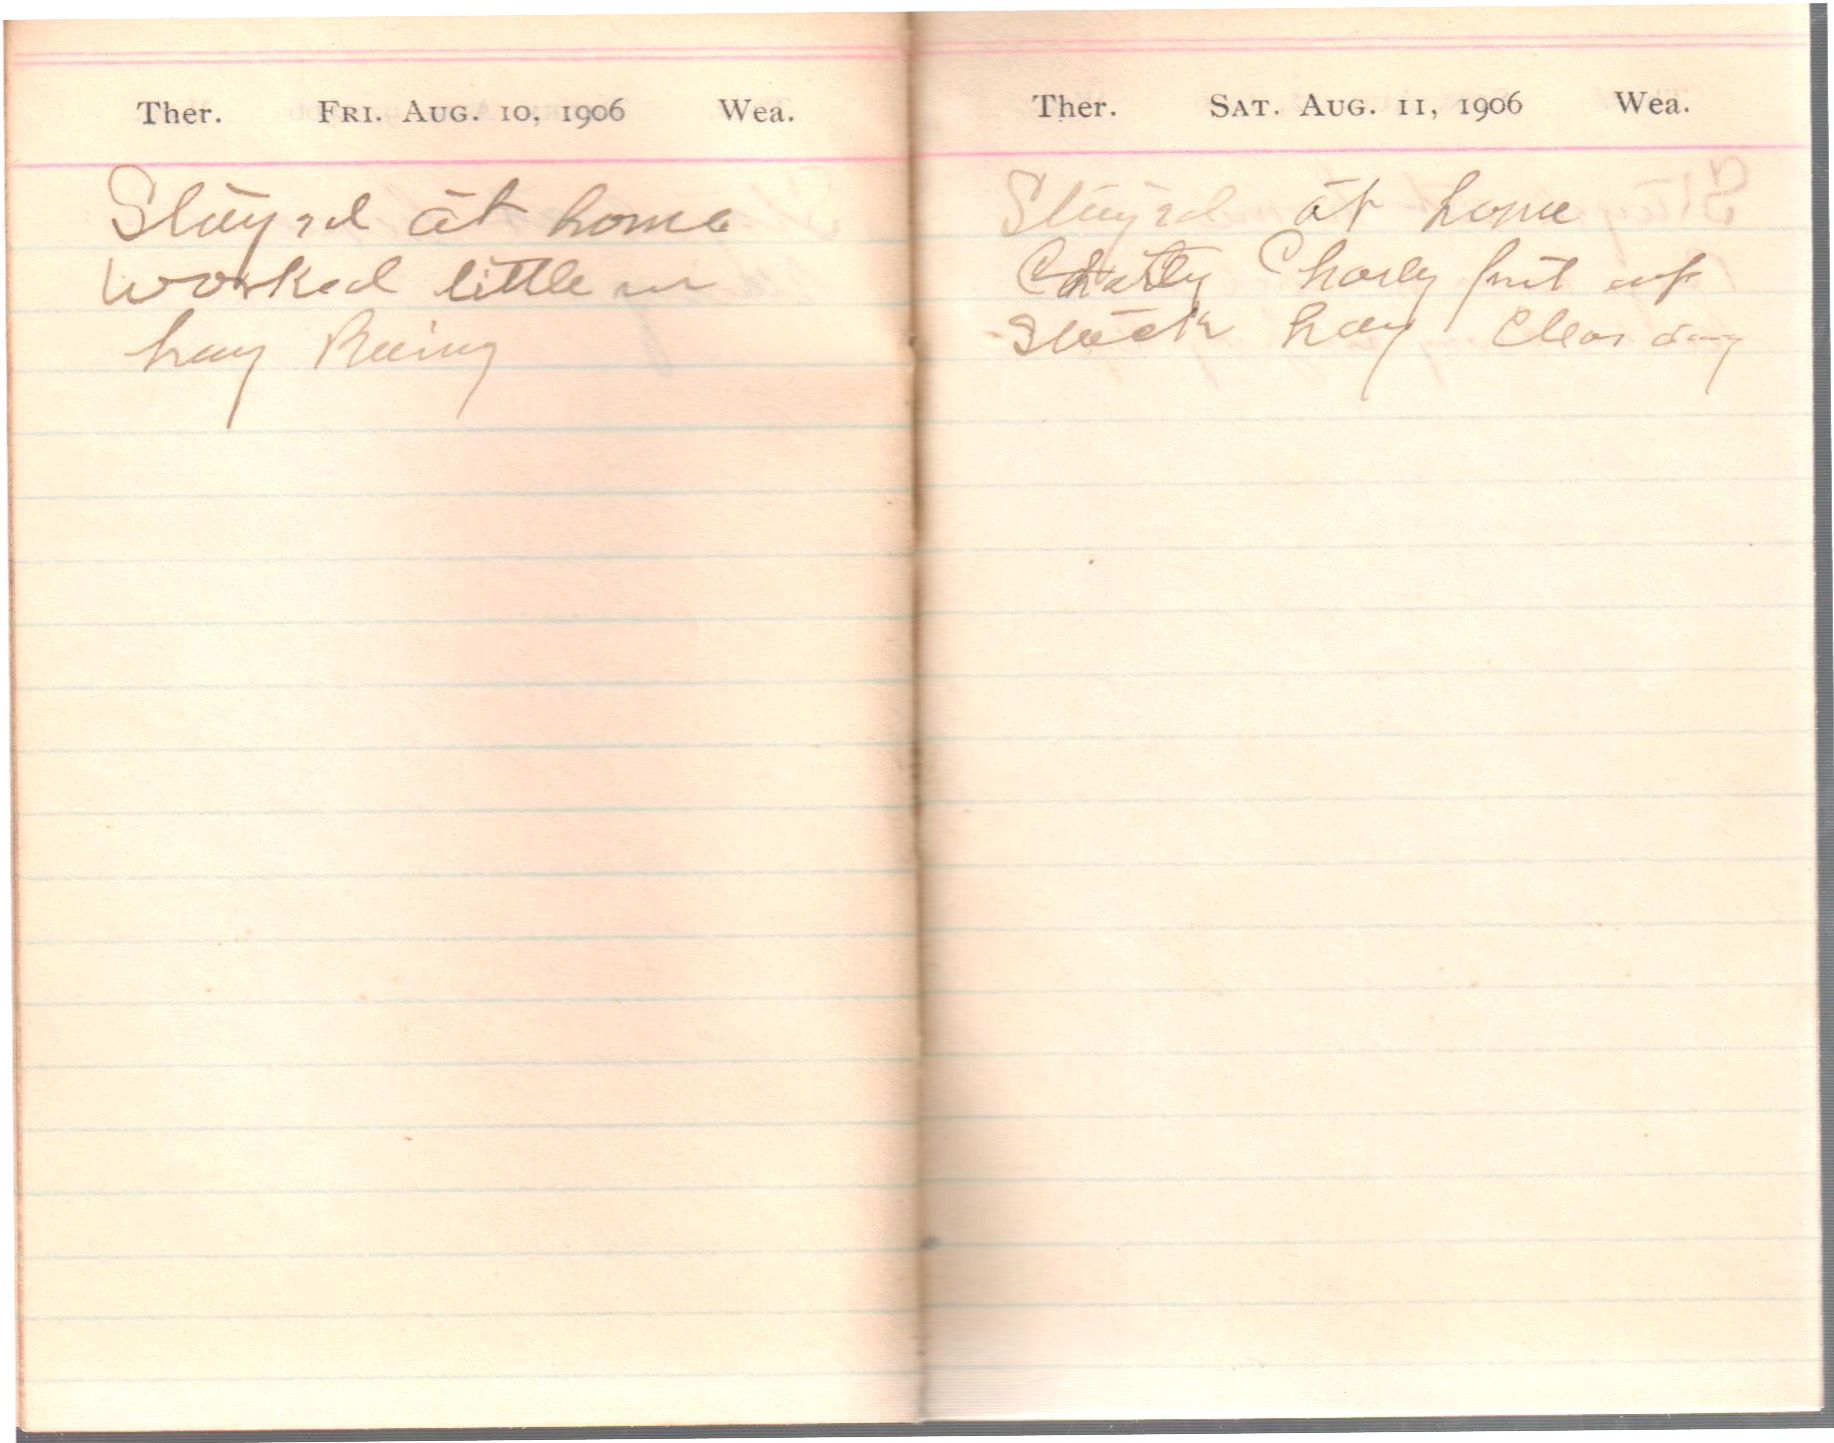 Ther. Fri. Aug. 10, 1906 Wea.
Stayed at home
worked little in
hay Raing
Ther. Sat. Aug. 11, 1906 Wea.
Stayed at home
Charly put up
Stack hay Clear day